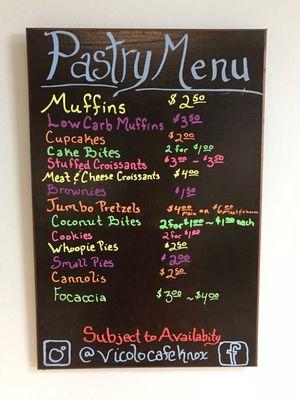 Pastry Menu
Muffins $2.50
Low Carb Muffins $3.50
Cupcakes $2.00
Cake Bites 2 for $1.00
Stuffed Croissants $3.00 ~ $3.50
Meat & Cheese Croissants $4.00
Brownies $1.50
Jumbo Pretzels $4.00 Plain OR $6.00
Coconut Bites 2 for $1.00 ~ $1.50 each
Cookies 2 for $1.00
Whoopie Pies $2.50
Small Pies $2.00
Cannolis $2.50
Focaccia $3.00 ~ $4.00
Subject to Availabity
@vicolocafeknox